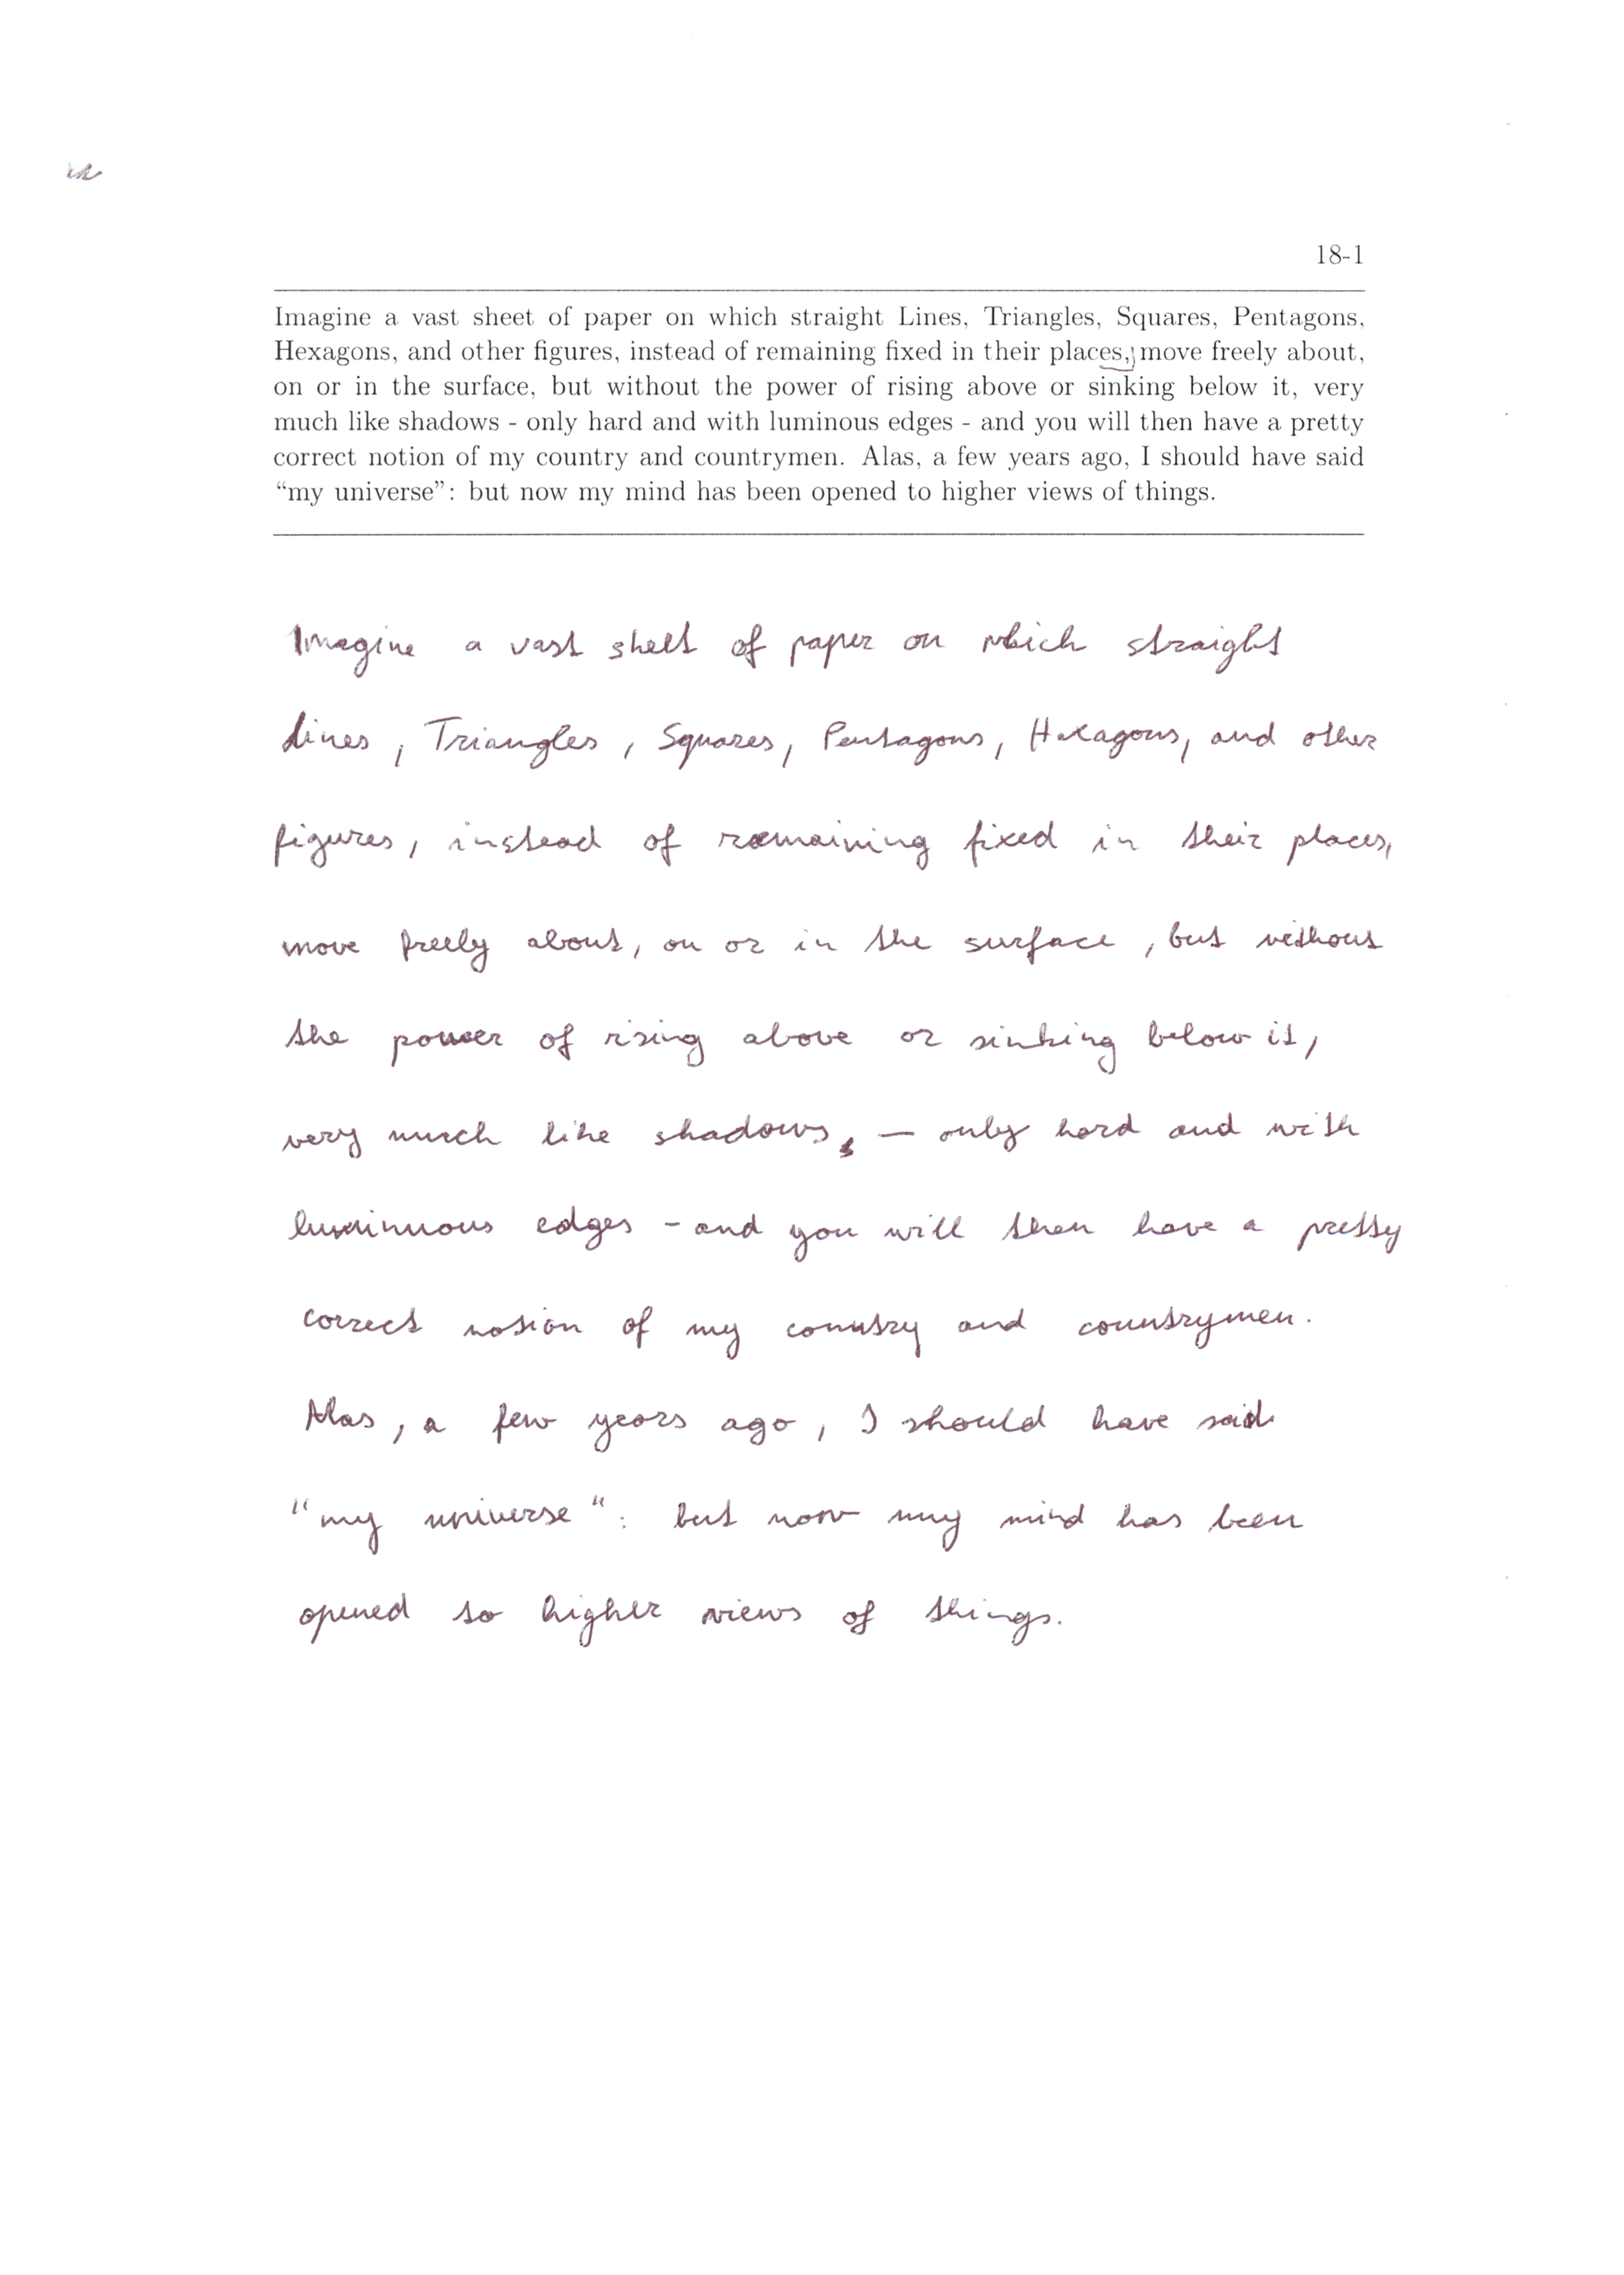 18-1
Imagine a vast sheet of paper on which straight Lines, Triangles, Squares, Pentagons,
Hexagons, and other figures, instead of remaining fixed in their places, move freely about,
on or in the surface, but without the power of rising above or sinking below it, very
much like shadows - only hard and with luminous edges - and you will then have a pretty
correct notion of my country and countrymen. Alas, a few years ago, I should have said
“my universe”: but now my mind has been opened to higher views of things.
Imagine a vast sheet of paper on which straight
Lines, Triangles, Squares, Pentagons, Hexagons, and other
figures, instead of remaining fixed in their places,
move freely about, on or in the surface, but without
the power of rising above or sinking below it,
very much like shadows, — only hard and with
luminuous edges - and you will then have a pretty
correct notion of my country and countrymen.
Alas, a few years ago, I should have said
"my universe": but now my mind has been
opened to higher views of things.